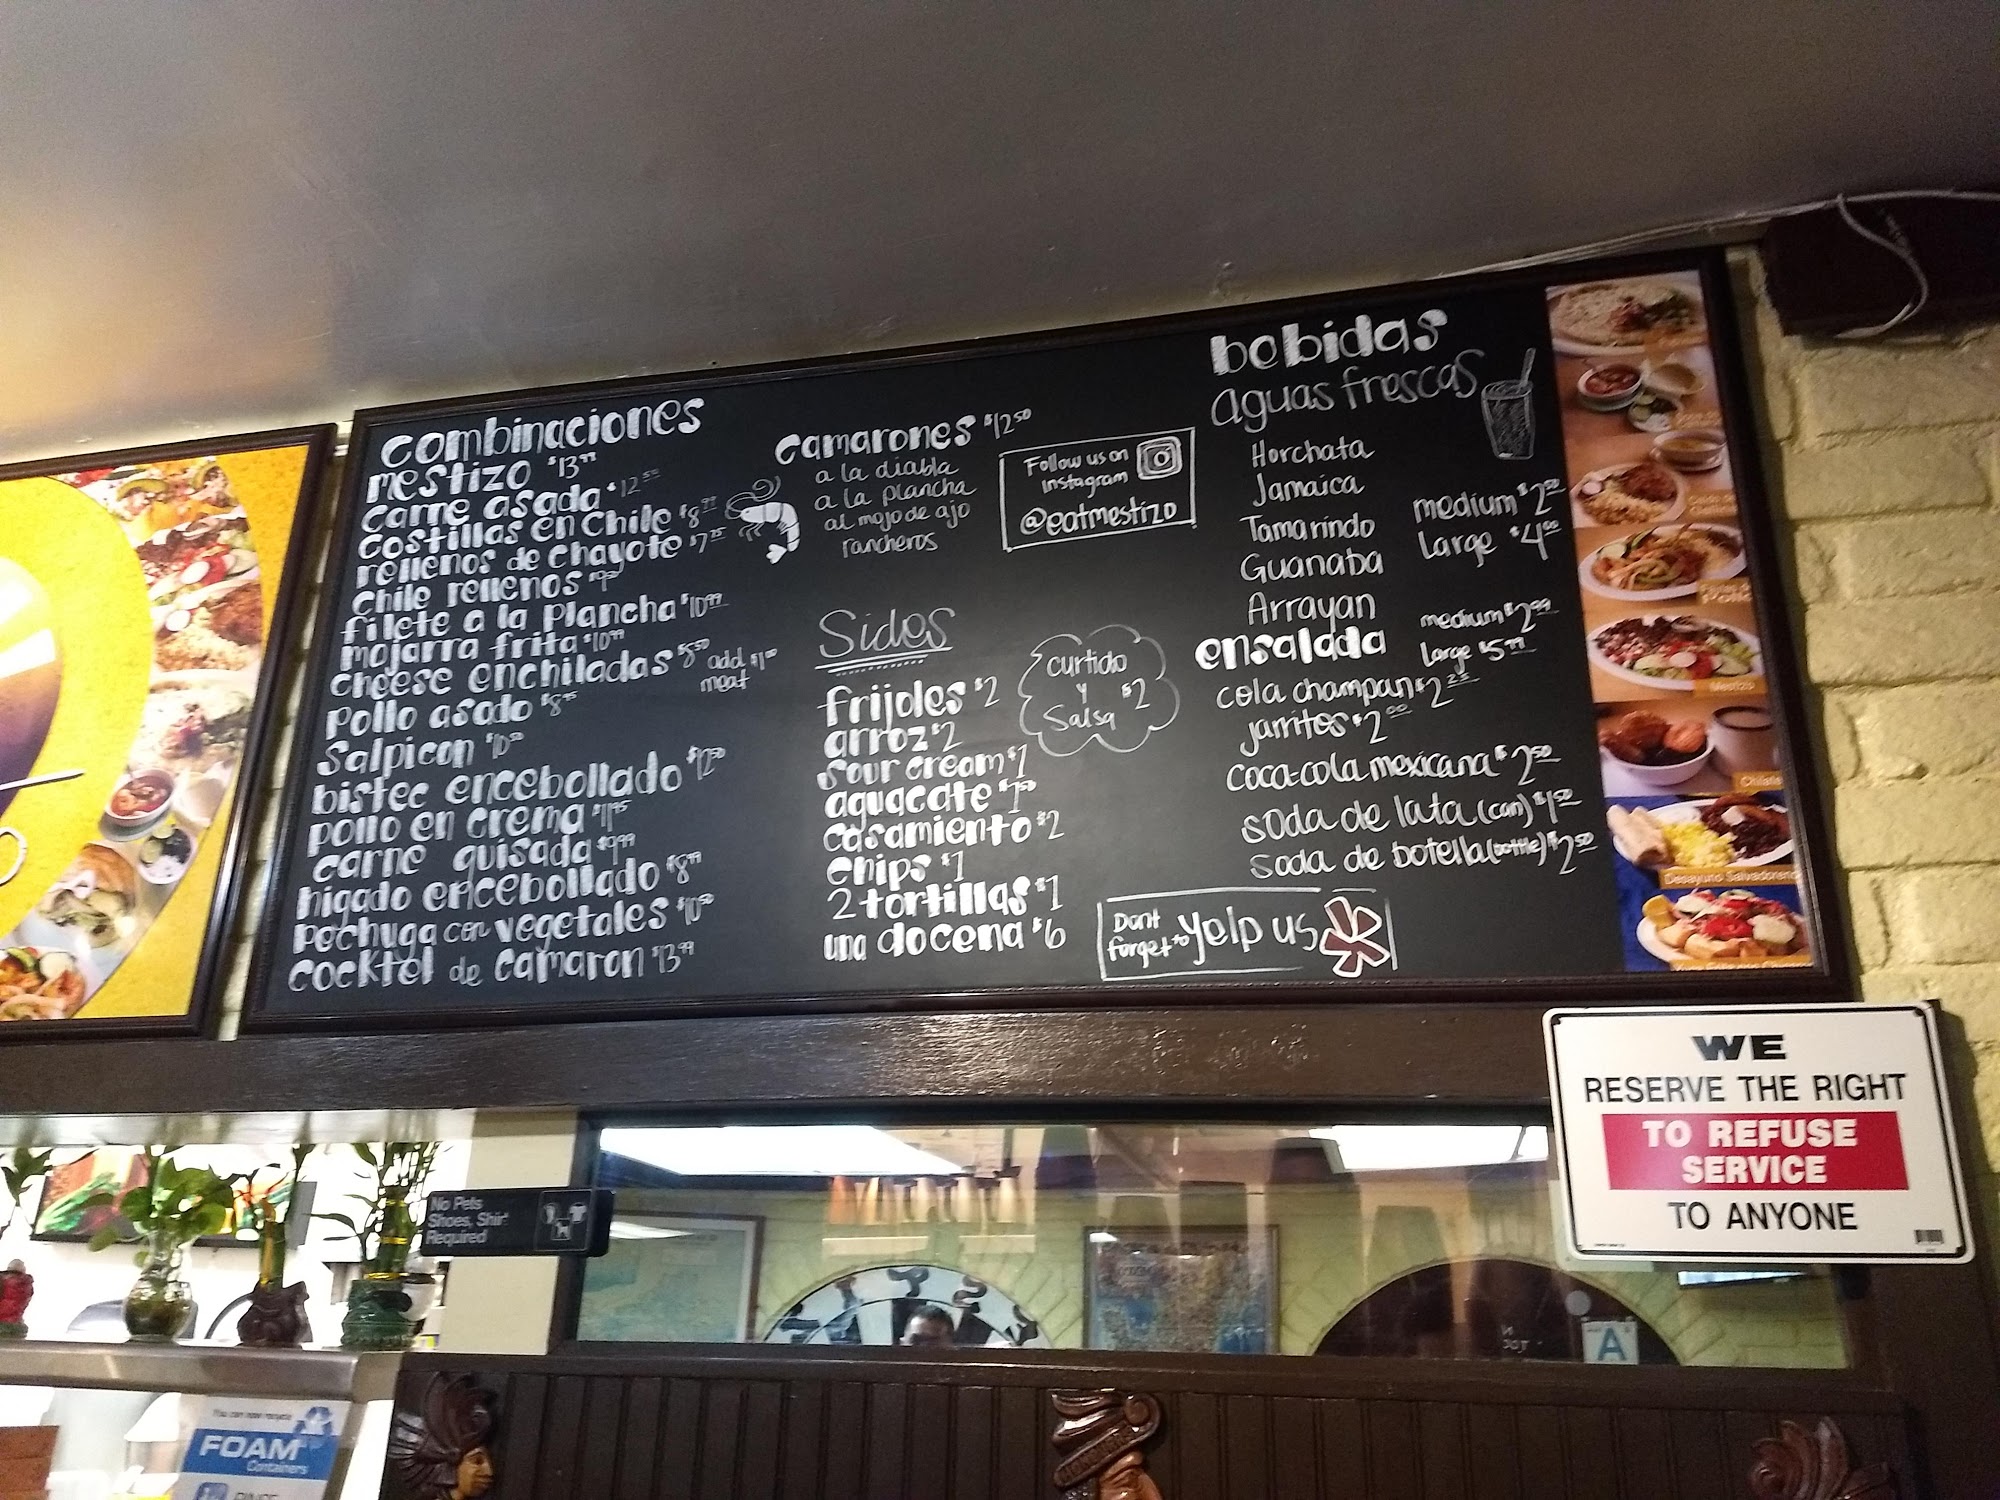 combinaciones
mestizo $13.99
carne asada $12.50
costillas en chile $8.99
rellenos de chayote $7.75
chile rellenos
filete a la plancha $10.99
mojarra frita $10.99
cheese enchiladas $8.50 add $1.00
meat
pollo asado
salpicon
bistec encebollado $12.50
pollo en crema $11.95
carne guisada $9.99
higado encebollado $8.99
pechuga con vegetales $10.50
cocktel de camaron $13.99
camarones $12.50
a la diabla
a la plancha
al mojo de ajo
rancheros
Follow us on
instagram
@eatmestizo
Sides
frijoles $2
arroz $2
sour cream $1
aguacate $1.50
casamiento $2
chips $1
2 tortillas $1
una docena $6
curtido
y
Salsa $2
bebidas
aguas frescas
Horchata
Jamaica
Tamarindo
Guanaba
Arrayan
medium $2.50
Large $4.00
ensalada
medium $2.99
large $5.99
cola champan $2.25
jarritos $2.00
coca-cola mexicana $2.50
soda de lata (can) $1.50
soda de botella (bottle) $2.50
Dont
forget to yelp us
Mestizo
Desayuno Salvadoreno
WE
RESERVE THE RIGHT
TO REFUSE
SERVICE
TO ANYONE
No Pets
Shoes, Shirt
Required
A
You can now recycle
FOAM
Containers